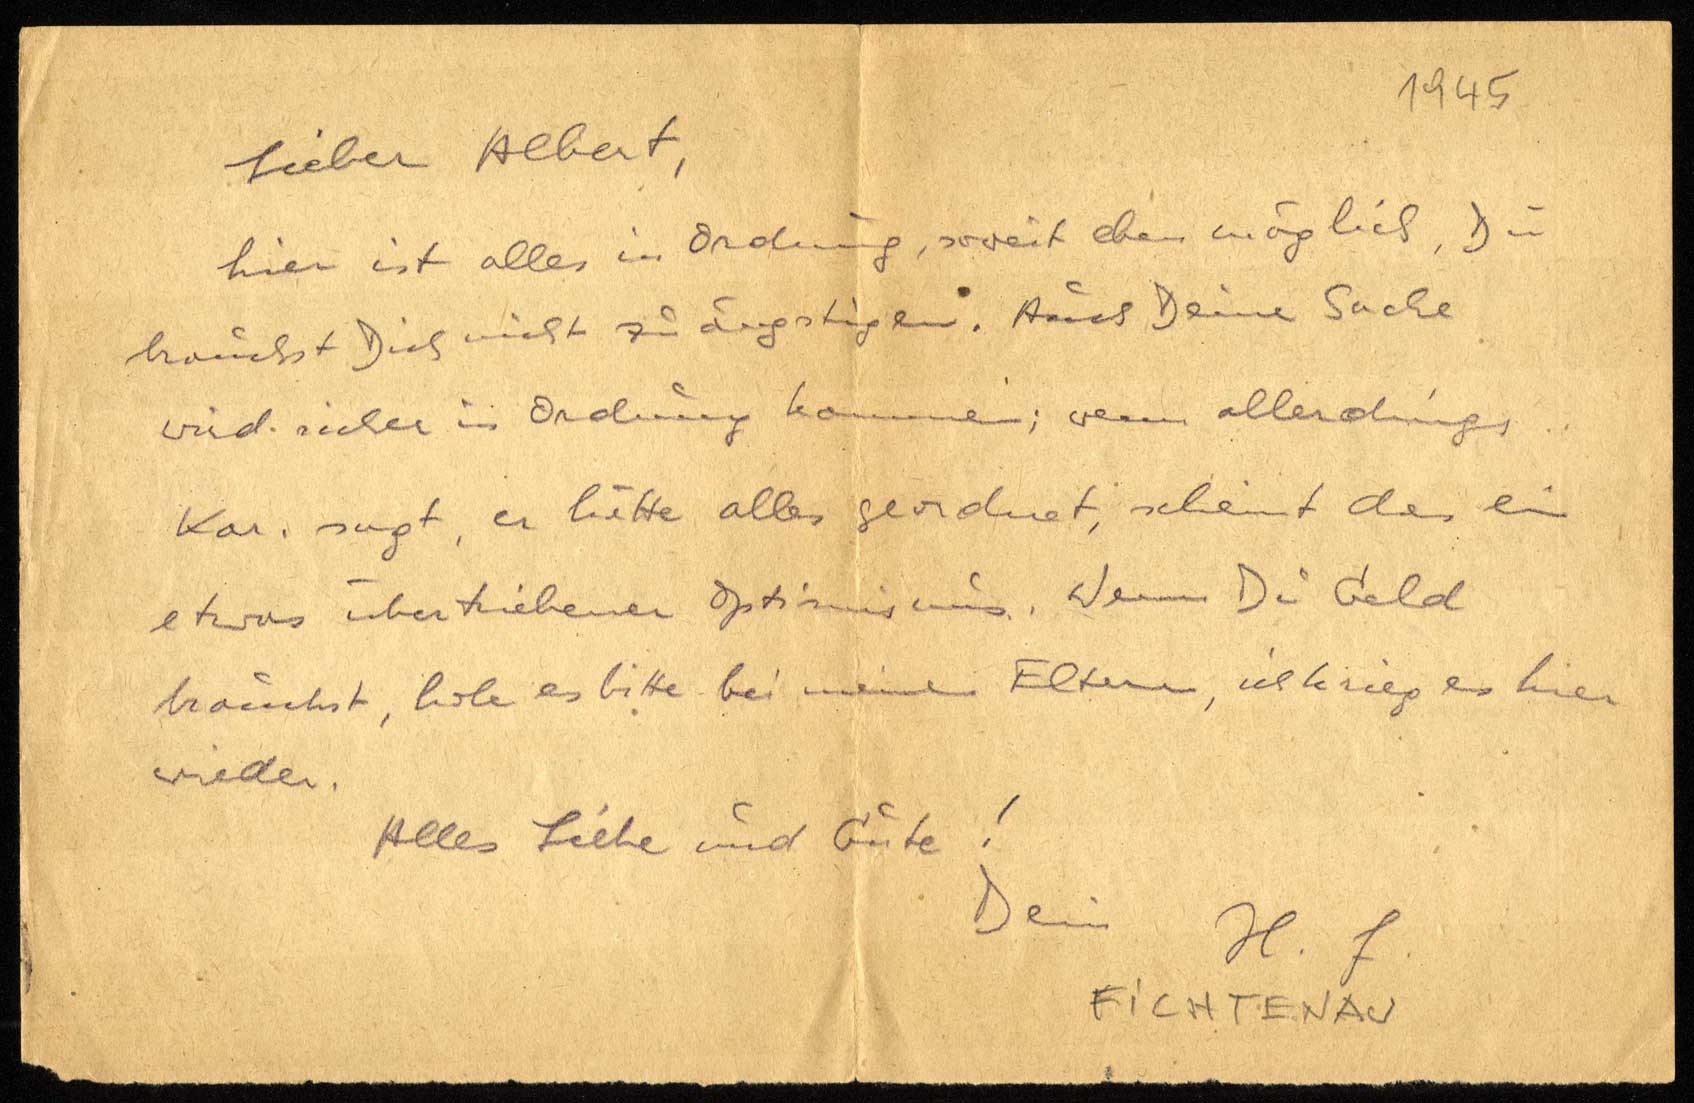 1945
Lieber Albert,
hier ist alles in Ordnung, soweit eben möglich, Du
brauchst Dich nicht zu ängstigen. Auch Deine Sache
wird sicher in Ordnung kommen; wenn allerdings
Kar. sagt, er hätte alles geordnet, scheint das ein
etwas übertriebener Optimismus. Wenn Du Geld
brauchst, hole es bitte bei meinen Eltern, ich krieg es hier
wieder.
Alles Liebe und Gute!
Dein H. F.
FICHTENAU